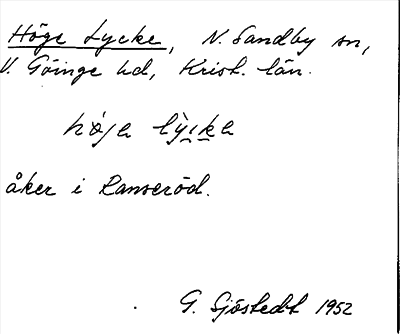 Höge Lycke, N. Sandby sn,
V. Göinge hd, Krist. län.
höja lỳcka
åker i Ranseröd.
G. Sjöstedt 1952